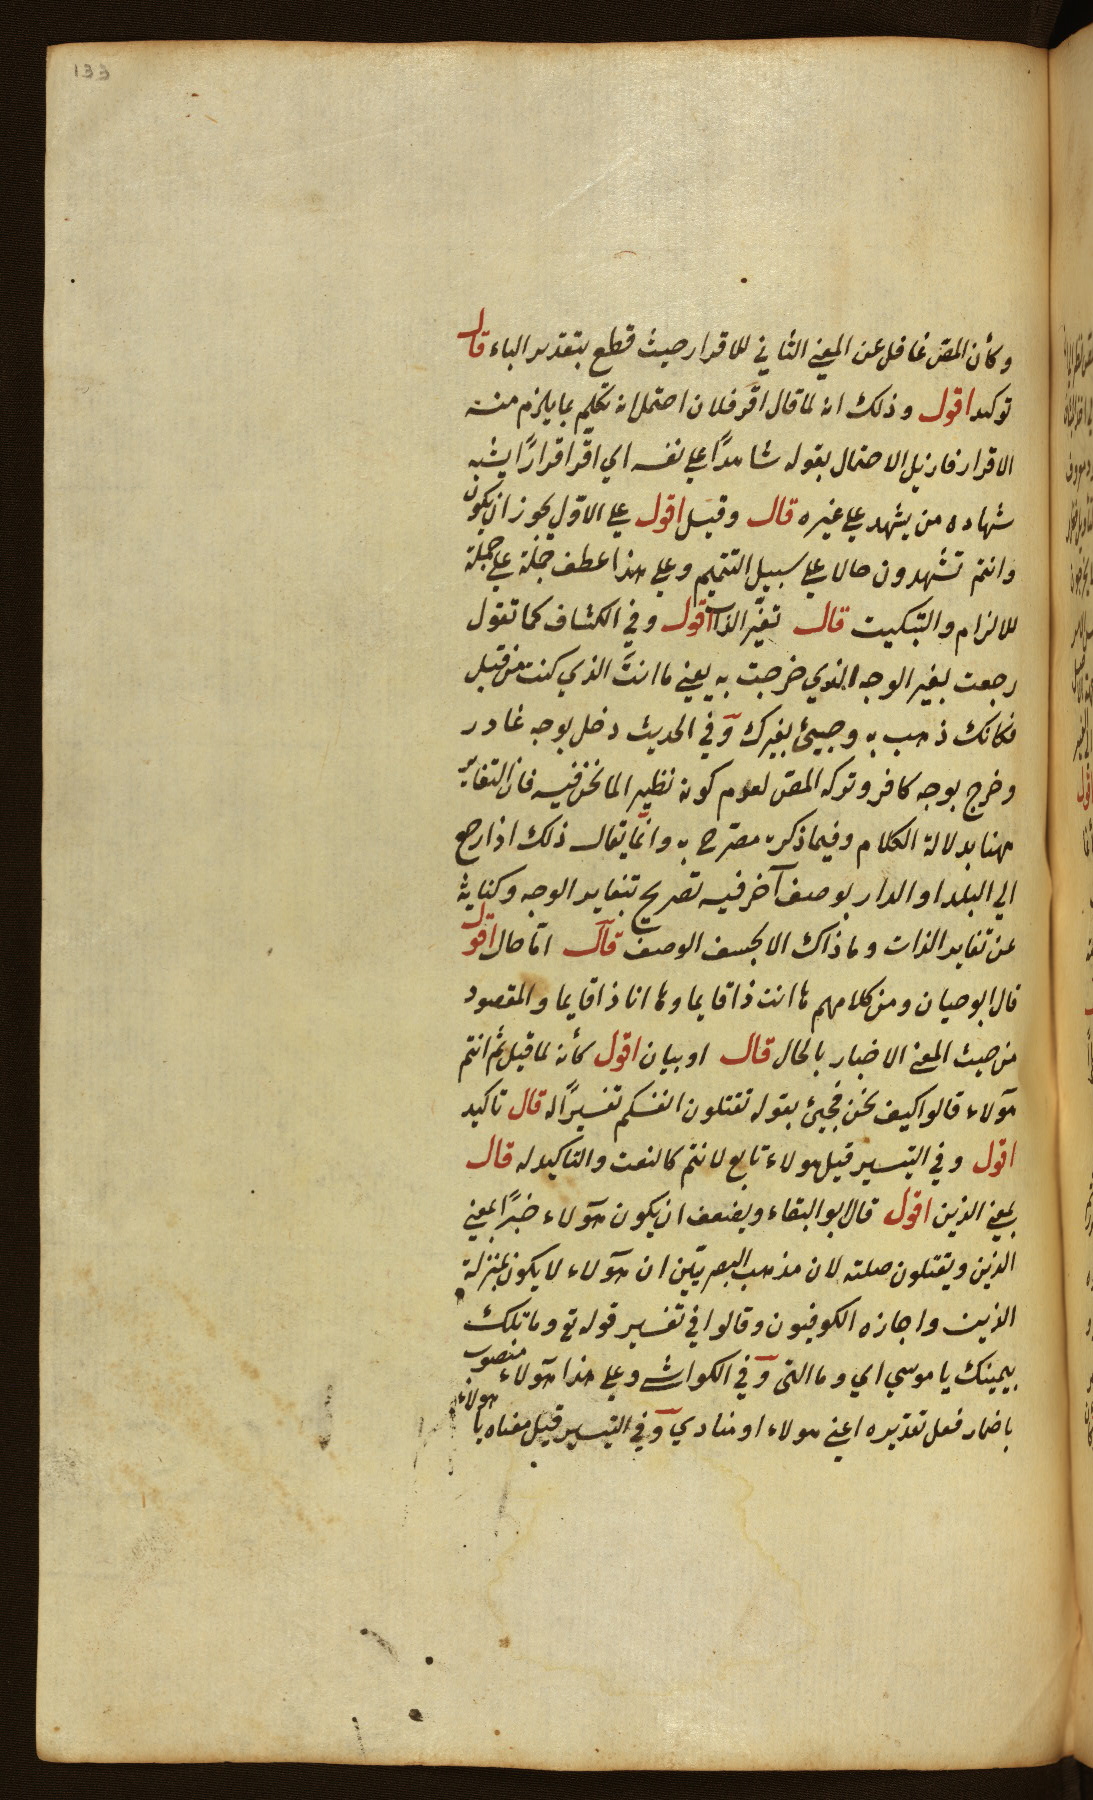 133
وكأن المص غافل عن المعني الثاني للاقرار حيث قطع بتقدير الباء قال
توكيد اقول وذلك انه لما قال اقر فلان احتمل انه تكلم بما يلزم منه
الاقرار فازيل الاحتمال بقوله شاهدًا علي نفسه اي اقر اقرارًا يشبه
شهاده من يشهد علي غيره قال وقيل اقول علي الاول يجوز ان يكون
وانتم تشهدون حالا علي سبيل التتميم وعلي هذا عطف جملة علي جملة
للالزام والتبكيت قال تغير الذات اقول وفي الكشاف كما تقول
رجعت بغير الوجه الذي خرجت به يعني ما انت الذي كنت من قبل
فكانك ذهب به وجيئ بغيرك وفي الحديث دخل بوجه غادر
وخرج بوجه كافر وتركه المص لعدم كونه نظير الما نحن فيه فان التغاير
مهنا بدلالة الكلام وفيما ذكره مصرح به وانما يقال ذلك اذا رجع
الي البلد او الدار بوصف آخر فيه تصريح بتغاير الوجه وكناية
عن تغاير الذات وما ذاك الا بحسب الوصف قال اما حال اقول
قال ابو حيان ومن كلامهم ها انت ذا قايما وها انا ذا قايما والمقصود
من حيث المعني الاخبار بالحال قال او بيان اقول كأنه لما قيل ثم انتم
هؤلاء قالوا كيف نحن فجيئ بقوله تقتلون انفسكم تفسيرًا له قال تاكيد
اقول وفي التيسير قيل هولاء تابع لانتم كالنعت والتاكيد له قال
بمعني الذين اقول قال ابو البقاء ويضعف ان يكون هؤلاء خبرًا بمعني
الذين وتقتلون صلته لان مذهب البصريين ان هؤلاء لا يكون بمنزلة
الذين واجازه الكوفيون وقالوا في تفسير قوله تع وما تلك
بيمينك يا موسي اي وما التي وفي الكواشي وعلي هذا هؤلاء منصوب
باضمار فعل تقديره اعني هولاء او منادي وفي التيسير قيل معناه يا هولاء